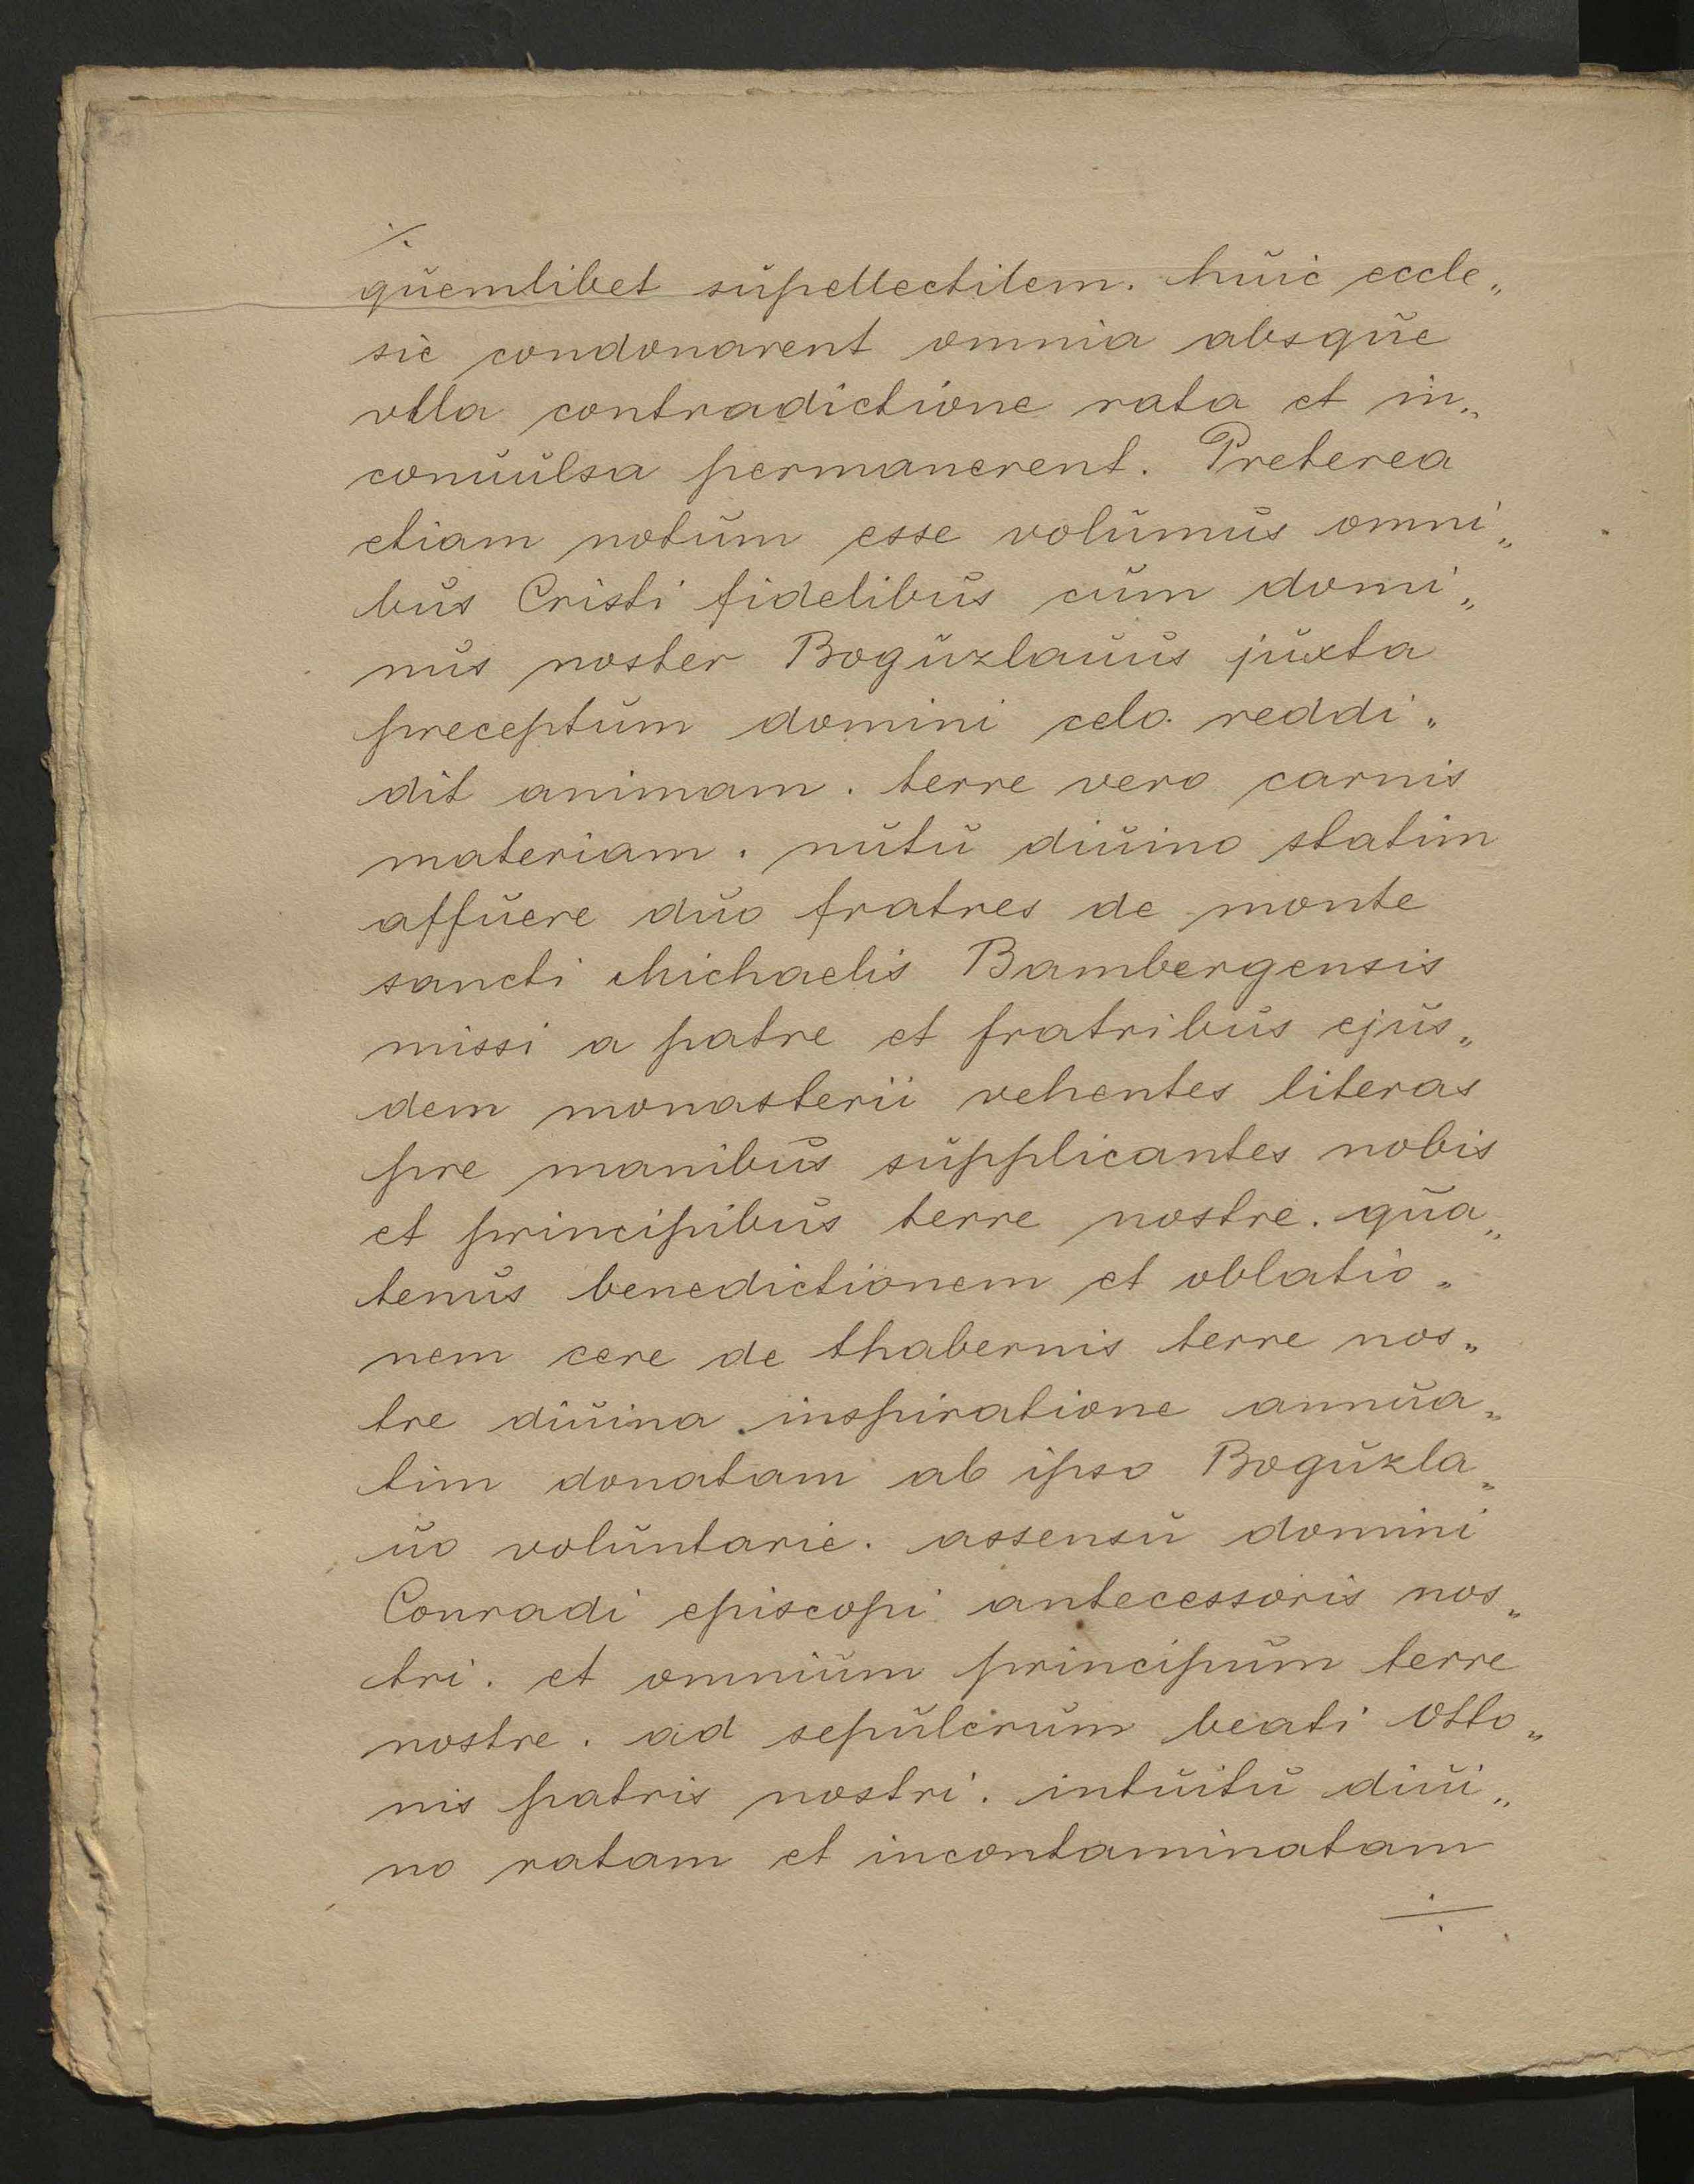 ⁒
quemlibet supellectilem. huic eccle„
sie condonarent omnia absque
vlla contradictione rata et in„
conuulsa permanerent. Preterea
etiam notum esse volumus omni„
bus Cristi fidelibus cum domi„
nus noster Boguzlauus juxta
preceptum domini celo reddi„
dit animam. terre vero carnis
materiam. nutu diuino statim
affuere duo fratres de monte
sancti Michaelis Bambergensis
missi a patre et fratribus ejus„
dem monasterii vehentes literas
pre manibus supplicantes nobis
et principibus terre nostre. qua„
tenus benedictionem et oblatio„
nem cere de thabernis terre nos„
tre diuina inspiratione annua„
tim donatam ab ipso Boguzla„
uo voluntarie. assensu domini
Conradi episcopi antecessoris nos„
tri. et omnium principum terre
nostre. ad sepulcrum beati Otto„
nis patris nostri. intuitu diui„
no ratam et incontaminatam
÷